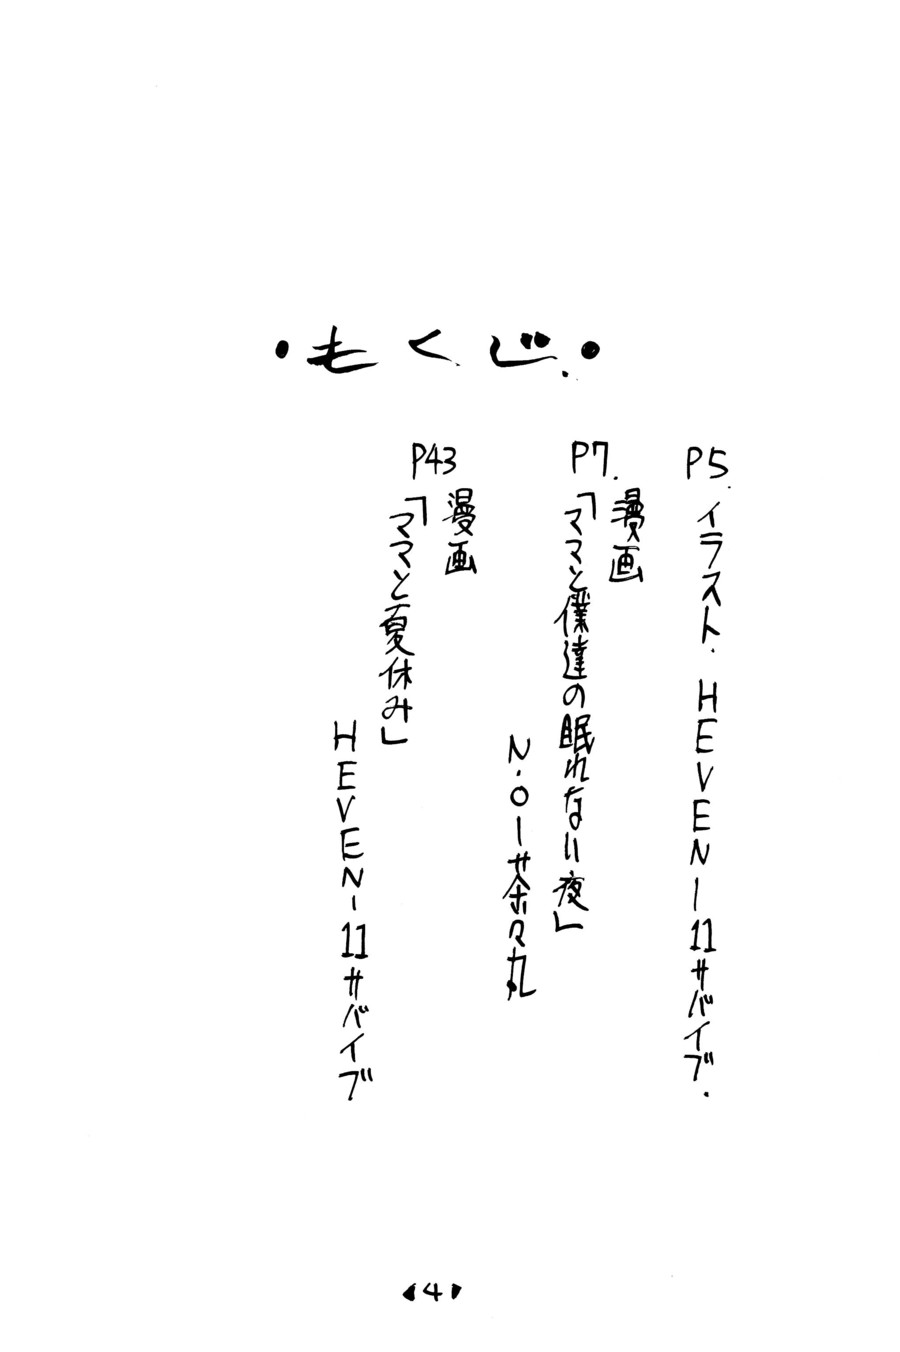 ・もくじ・
P5. イラスト. HEVEN-11サバイブ.
P7.
漫画
「ママと僕達の眠れない夜」
N.O-茶々丸
P43
漫画
「ママと夏休み」
HEVEN-11サバイブ
4